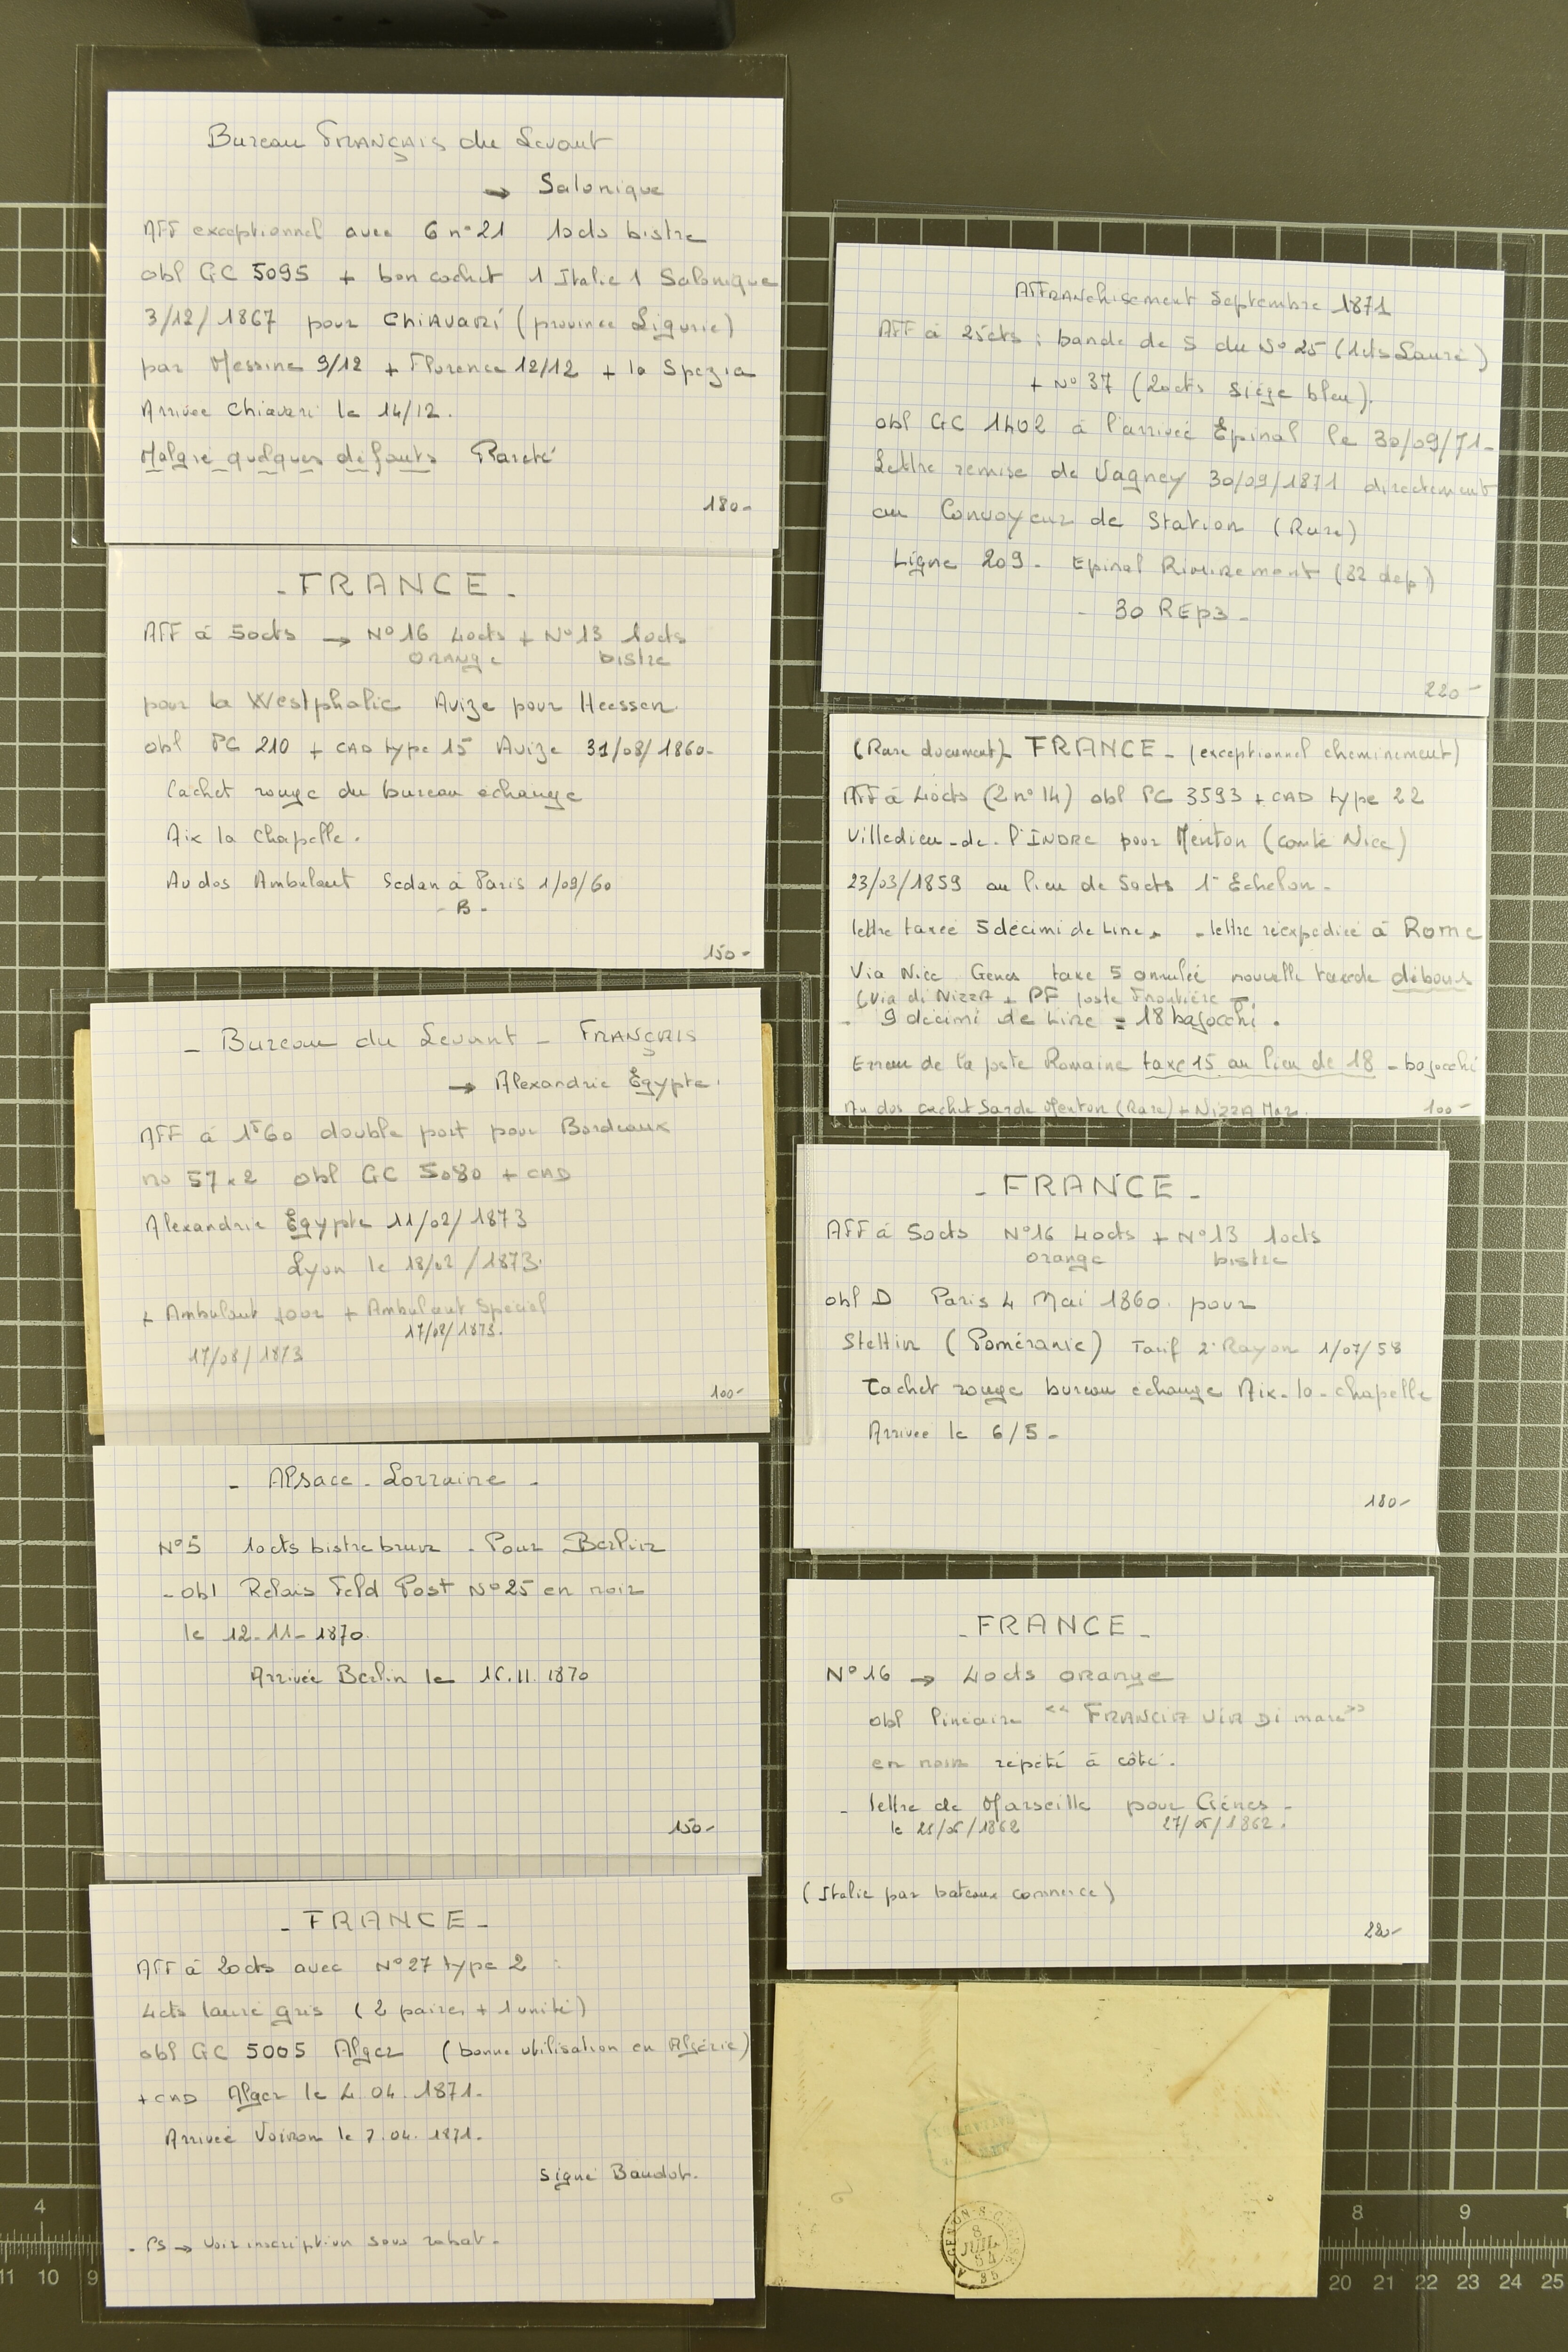 Bureau FRANÇAIS du Levant
→ Salonique
AFF exceptionnel avec 6 n°21 10cts bistre
obl GC 5095 + bon cachet 1 Italie 1 Salonique
3/12/1867 pour CHIAVARI (province Ligurie)
par Messine 9/12 + Florence 12/12 + la Spezia
Arrivée Chiavari le 14/12.
Malgré quelques défauts Rareté
180-
- FRANCE -
AFF à 50cts → N°16 40cts + N°13 10cts
orange bistre
pour la Westphalie Avize pour Heessen.
obl PC 210 + CAD type 15 Avize 31/08/1860-
Cachet rouge du bureau echange
Aix la Chapelle.
Au dos Ambulant Sedan à Paris 1/09/60
- B -
150-
- Bureau du Levant - FRANÇAIS
→ Alexandrie Egypte.
AFF à 1F60 double port pour Bordeaux
no 57x2 obl GC 5080 + CAD
Alexandrie Egypte 11/02/1873
Lyon le 18/02/1873.
+ Ambulant jour + Ambulant Special
17/02/1873.
17/08/1873
100-
- Alsace - Lorraine -
N°5 10cts bistre brun - Pour Berlin
- obl Relais Feld Post N°25 en noir
le 12-11-1870.
Arrivée Berlin le 16.11.1870
150-
- FRANCE -
AFF à 20cts avec N°27 type 2 :
4cts lauré gris (2 paires + 1 unité)
obl GC 5005 Alger (bonne utilisation en Algérie)
+ CAD Alger le 4.04.1871-
Arrivée Voiron le 7.04.1871-
signé Baudot.
- PS → voir inscription sous rabat -
AFFRANchisement Septembre 1871
AFF à 25cts : bande de 5 du N°25 (1cts Lauré)
+ N°37 (20cts siège bleu).
obl GC 1402 à l'arrivée Épinal le 30/09/71-
Lettre remise de Vagney 30/09/1871 directement
au Convoyeur de Station (Rare)
Ligne 209 - Epinal Rimiremont (82 dep)
- 30 REp3 -
220-
(Rare document) FRANCE - (exceptionnel cheminement)
AFF à 40cts (2 n°14) obl PC 3593 + CAD type 22
Villedieu-de-l'INDRE pour Menton (comté Nice)
23/03/1859 au lieu de 50cts 1° Échelon -
lettre taxée 5 décimi de Lire - lettre réexpediée à Rome
Via Nice Genes taxe 5 annulée nouvelle taxe de débours
(Via di NizzA + PF poste Frontière
- 9 decimi de Lire = 18 bajocchi.
Erreur de la poste Romaine taxe 15 au lieu de 18 - bajocchi
Au dos cachet Sarde Menton (Rare) + NIZZA Mar.
100-
- FRANCE -
AFF à 50cts N°16 40cts + N°13 10cts
orange bistre
obl D Paris 4 Mai 1860. pour
Stettin (Poméranie) Tarif 2° Rayon 1/07/58
Cachet rouge bureau echange Aix-la-chapelle
Arrivée le 6/5-
180-
- FRANCE -
N°16 → 40cts orange
obl linéaire « FRANCIA VIA DI mare »
en noir répété à côté.
- lettre de Marseille pour Gènes -
27/05/1862.
(Italie par bateaux commerce)
220-
8
JUIL.
54
4
8 9
11 10 9
20 21 22 23 24 25